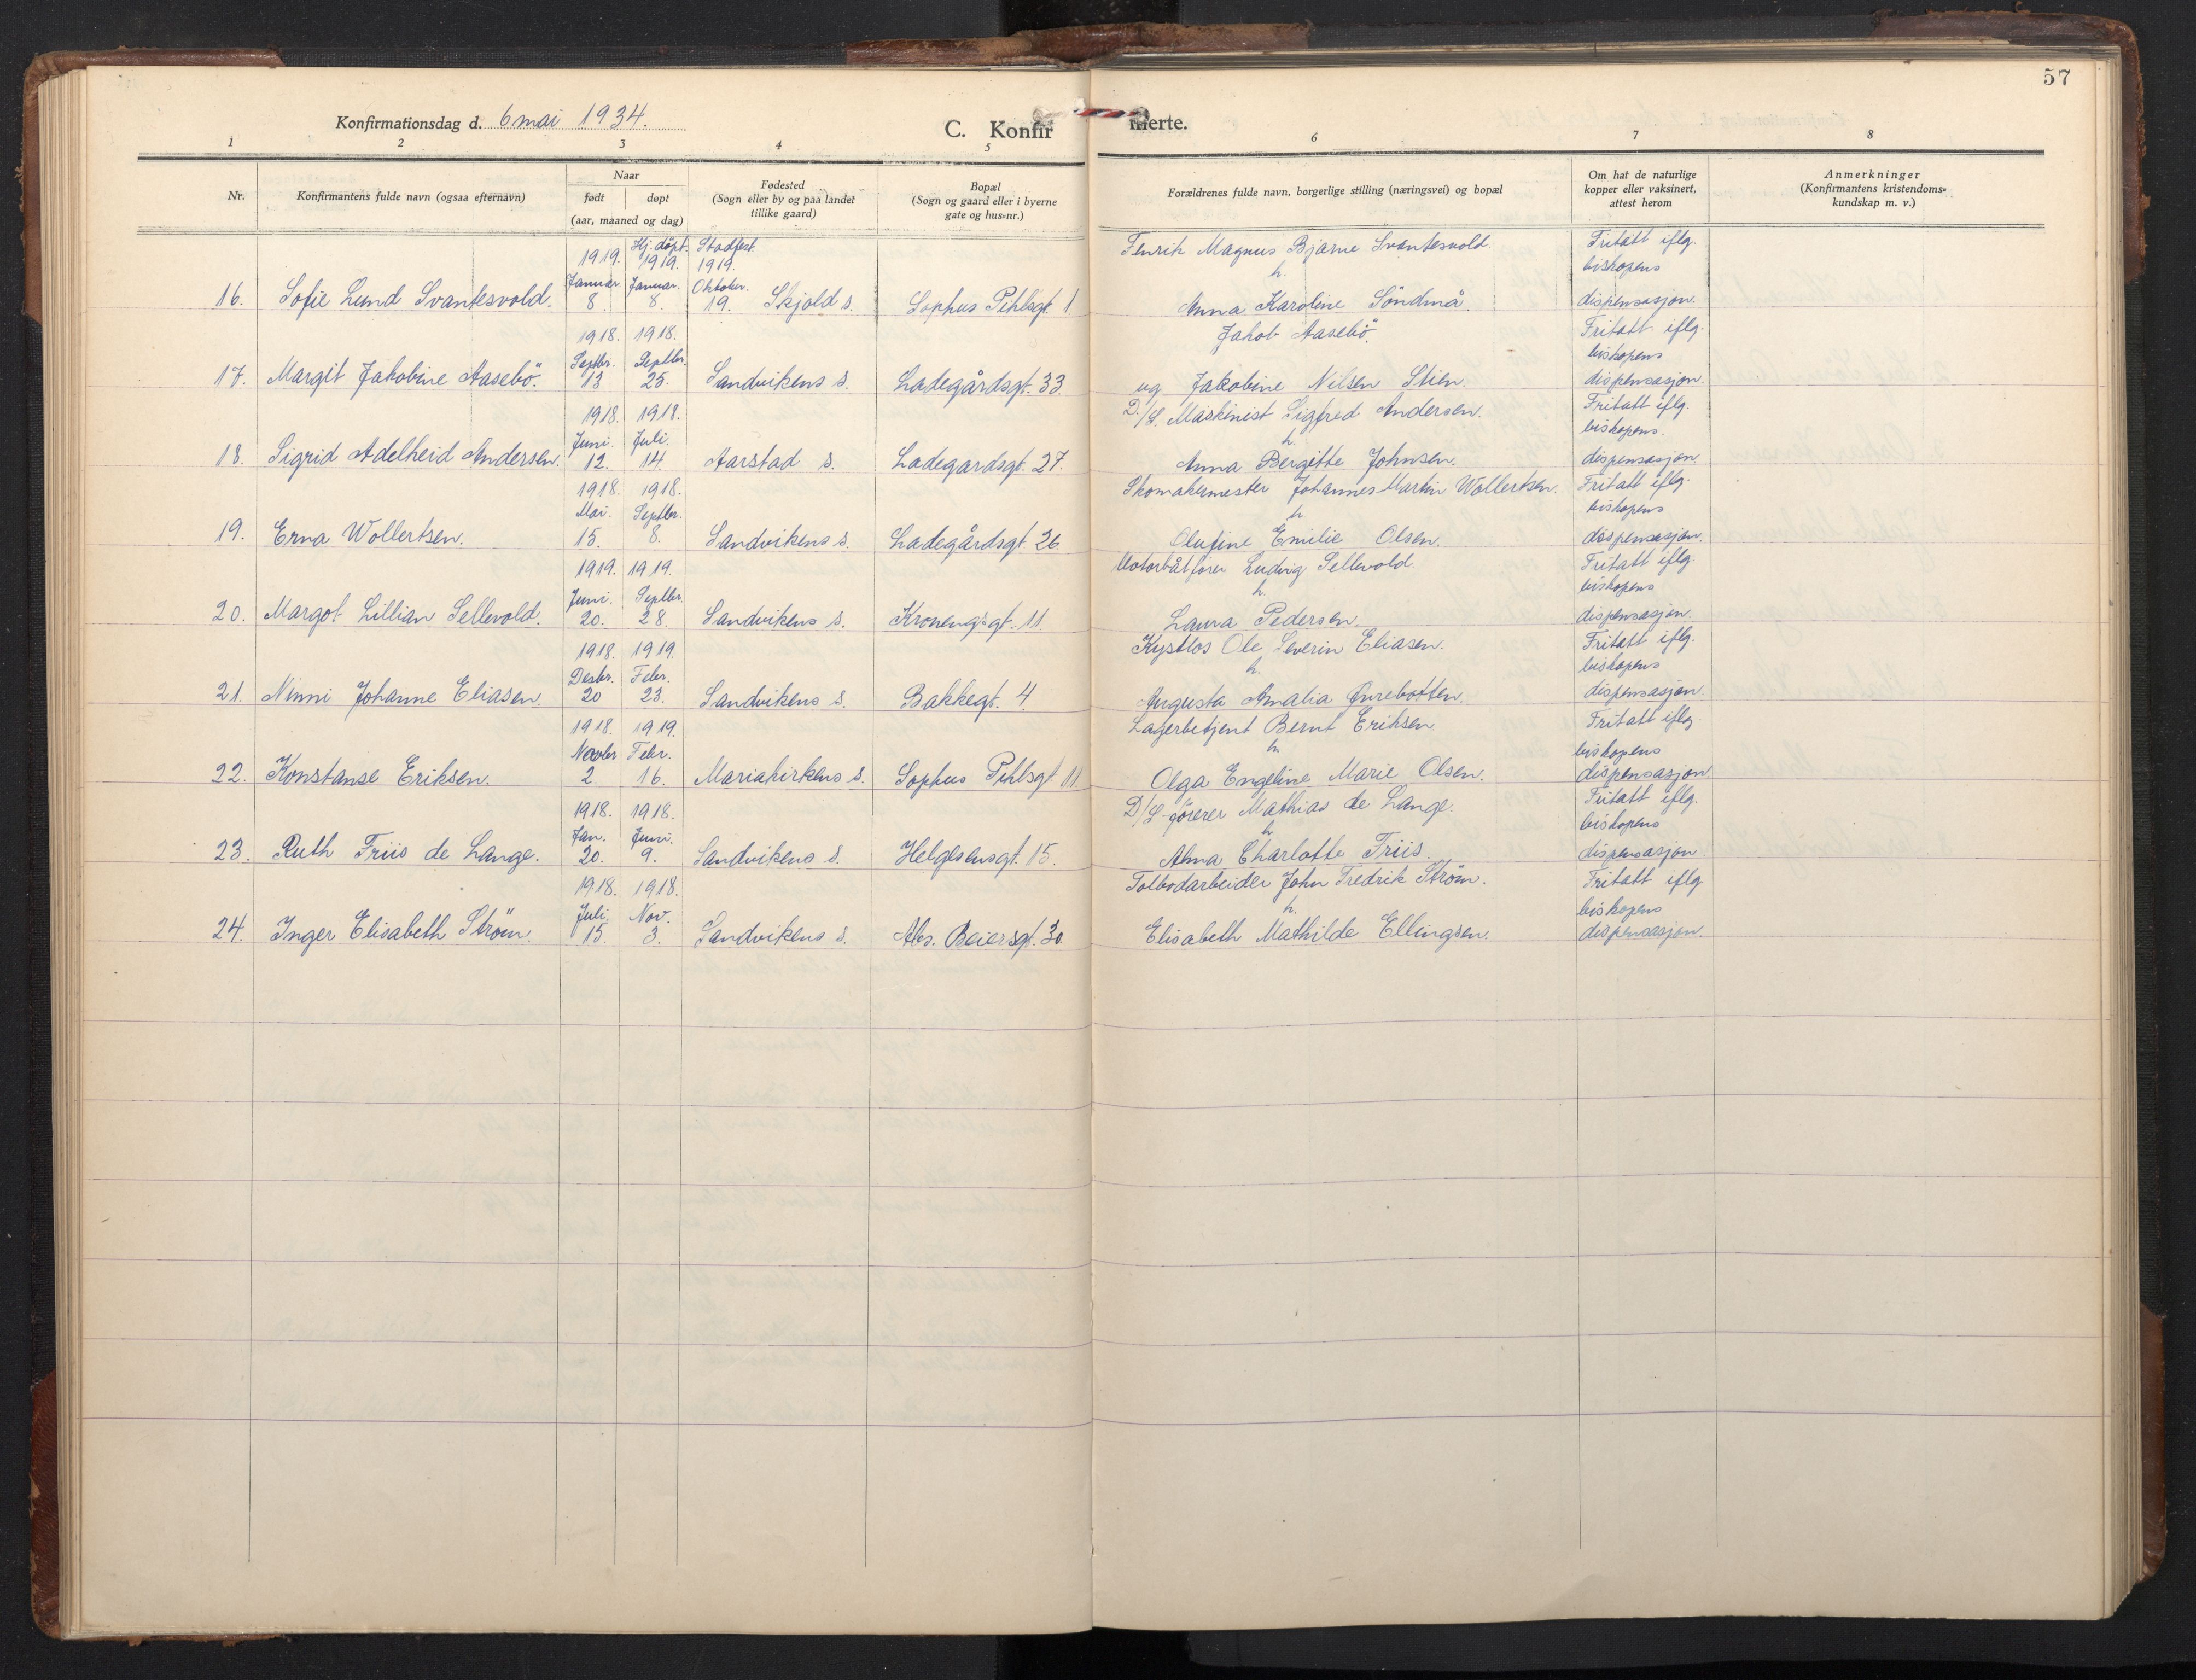 57
Konfirmationsdag d. 6 mai 1934.
C. Konfirmerte.
1 2 3 4 5 6 7 8
Nr.
Konfirmantens fulde navn (ogsaa efternavn)
Naar
født døpt
(aar, maaned og dag)
Fødested
(Sogn eller by og paa landet
tillike gaard)
Bopæl
(Sogn og gaard eller i byerne
gate og hus=nr.)
Forældrenes fulde navn, borgerlige stilling (næringsvei) og bopæl
Om hat de naturlige
kopper eller vaksinert,
attest herom
Anmerkninger
(Konfirmantens kristendoms=
kundskap m. v.)
Hj. döpt. Stadfest. Fenrik Magnus Bjarne Svantesvold. Fritatt iflg.
1919. 1919. 1919. h. biskopens
Januar. Januar. Oktober.
16. Sofie Lund Svantesvold. 8. 8. 19. Skjold s. Sophus Pihlsgt. 1. Anna Karoline Söndmå. dispensasjon.
1918. 1918. Jakob Aasebö. Fritatt iflg.
Septbr. Septbr. biskopens
17. Margit Jakobine Aasebö. 13 25. Sandvikens s. Ladegårdsgt. 33. og Jakobine Nilsen Stien. dispensasjon.
1918. 1918. D./S. Maskinist Sigfred Andersen. Fritatt iflg.
Juni. Juli. h. biskopens.
18. Sigrid Adelheid Andersen. 12. 14. Aarstad s. Ladegårdsgt. 27. Anna Bergitte Johnsen. dispensasjon.
1918. 1918. Skomakermester Johannes Martin Wollertsen. Fritatt iflg.
Mai. Septbr. h biskopens
19. Erna Wollertsen. 15. 8. Sandvikens s. Ladegårdsgt. 26. Olufine Emilie Olsen. dispensasjon.
1919. 1919. Motorbåtförer Ludvig Sellevold. Fritatt iflg.
Juni. Septbr. h. biskopens
20. Margot Lillian Sellevold. 20. 28. Sandvikens s. Kronengsgt. 11. Laura Pedersen. dispensasjon.
1918. 1919. Kystlos Ole Severin Eliasen. Fritatt iflg.
Desbr. Febr. h. biskopens
21. Ninni Johanne Eliasen 20 23. Sandvikens s. Bakkegt. 4. Augusta Amalia Aurebotten. dispensasjon.
1918. 1919. Lagerbetjent Bernt Eriksen. Fritatt iflg
Novbr Febr. h. biskopens
22. Konstanse Eriksen. 2. 16. Mariakirkens s. Sophus Pihlsgt. 11. Olga Engeline Marie Olsen. dispensasjon
1918. 1918. D/S-förerer Mathias de Lange. Fritatt iflg.
Jan. Juni. h. biskopens
23. Ruth Friis de Lange. 20. 9. Sandvikens s. Helgesensgt. 15. Alma Charlotte Friis. dispensasjon.
1918. 1918. Tolbodarbeider John Fredrik Ström. Fritatt iflg
Juli. Nov. h. biskopens
24. Inger Elisabeth Ström. 15. 3. Sandvikens s. Abs. Beiersgt. 30. Elisabeth Mathilde Ellingsen. dispensasjon.